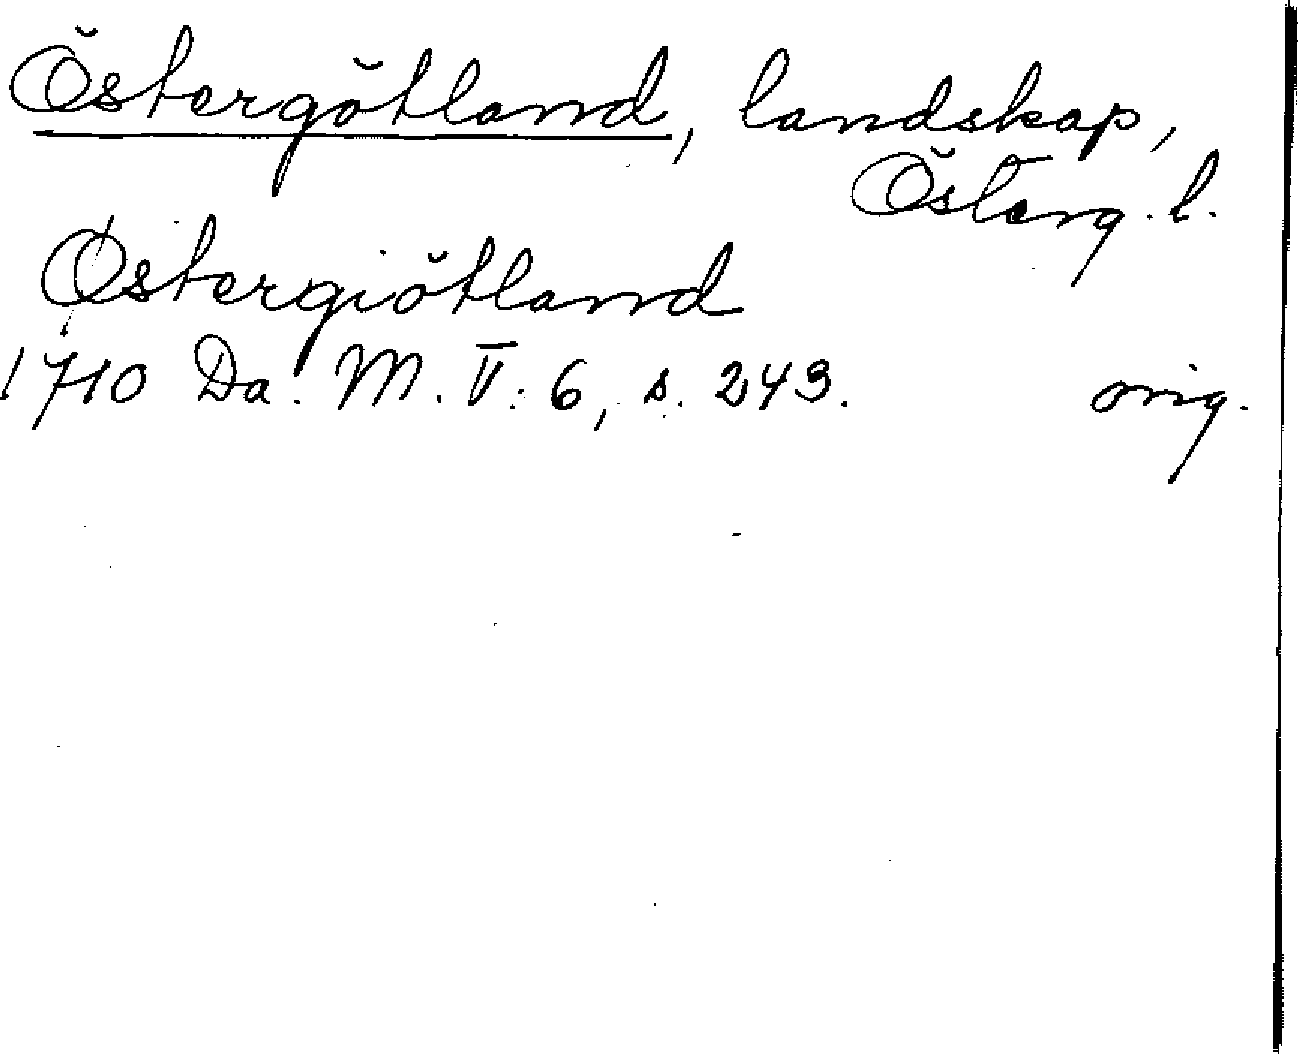 Östergötland, landskap,
Österg. l.
Østergiötland
1710 Da. M. V. 6, s. 243. orig.